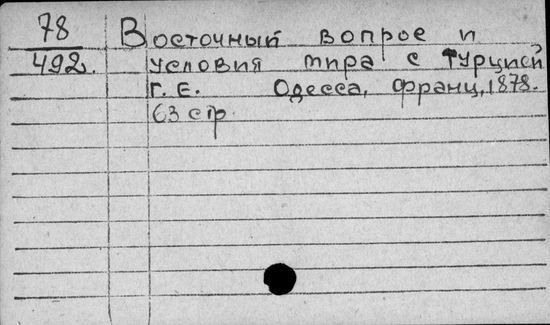 78
492.
Восточный вопрос и
условия мира с Турцией
Г. Е. Одесса, франц, 1878.
63 стр.